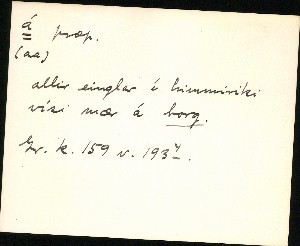 á præp.
(aa)
allir einglar í himmiriki
vísi mær á borg.
Gr. k. 159 v. 193⁴.